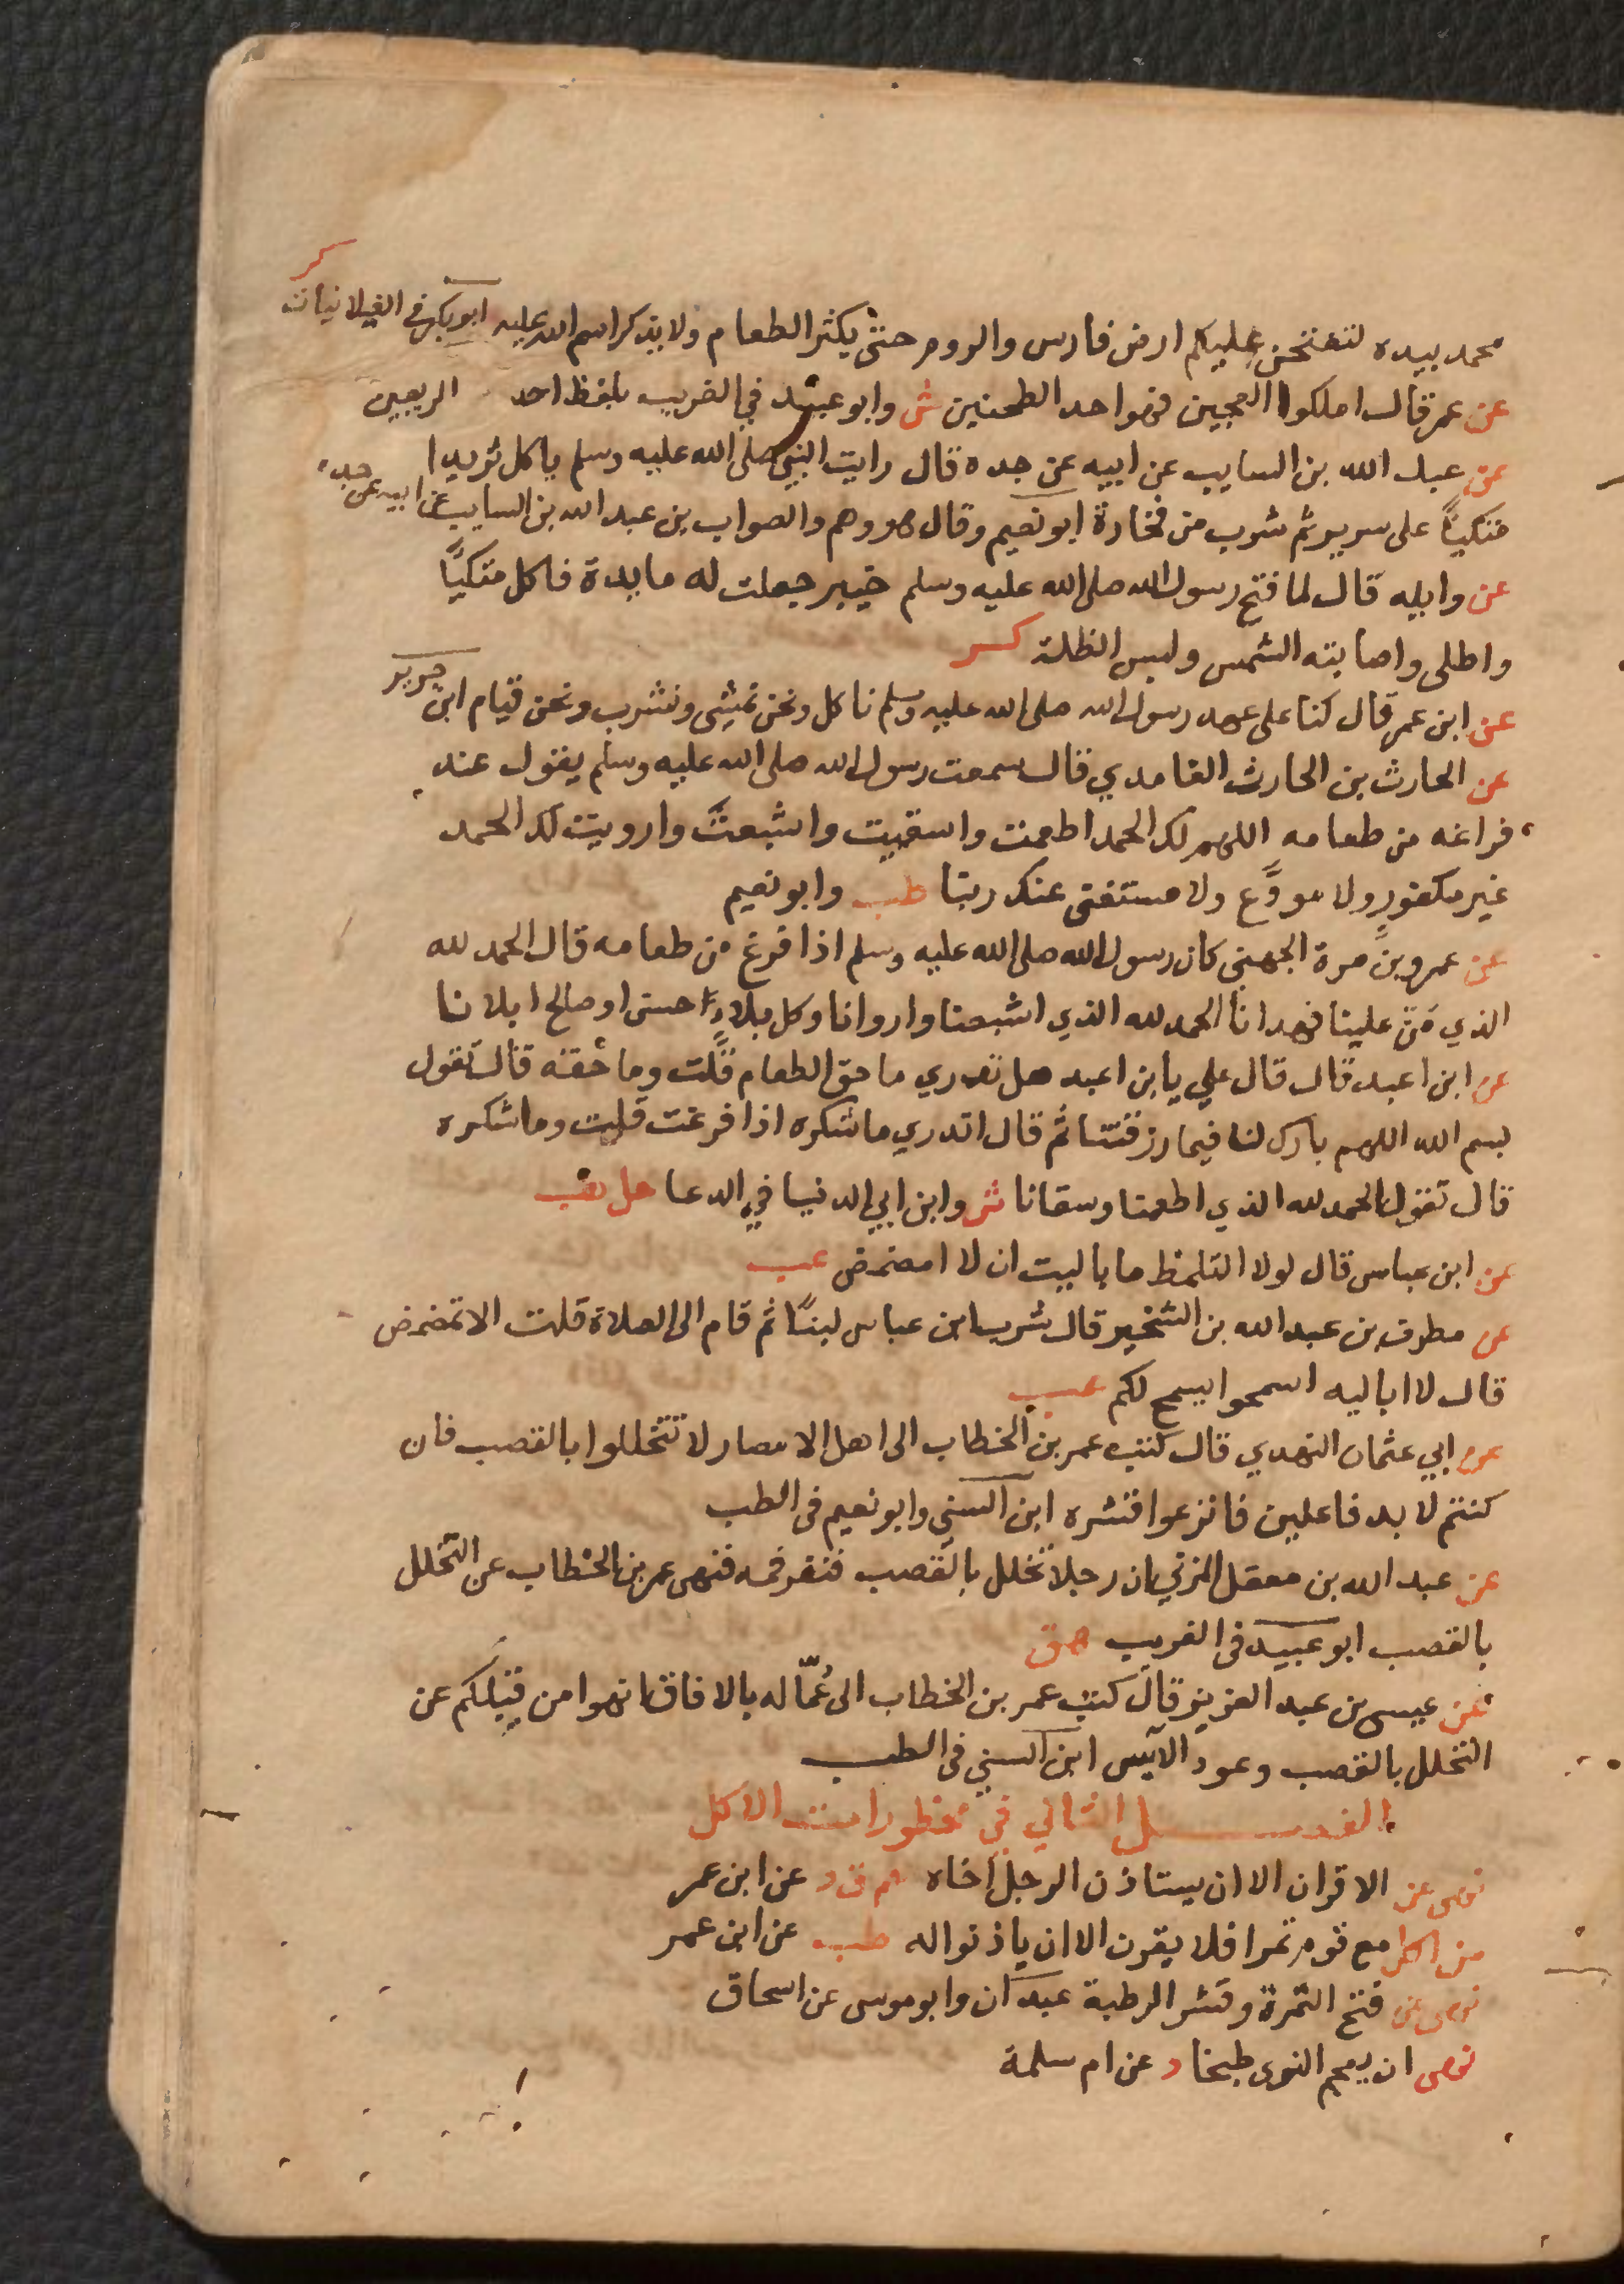 كر
محمد بيده لتفتحن عليكم ارض فارس والروم حتى يكثر الطعام ولا يذكر اسم الله عليه ابو بكر في الغيلانيات
عن عمر قال املكوا العجين فهو احد الطحنين ش وابو عبيد في الغريب بلفظ احد الريعين
عن عبد الله بن السايب عن ابيه عن جده قال رايت النبي صلى الله عليه وسلم ياكل ثريدا
متكيًا على سرير ثم شرب من فخارة ابو نعيم وقال هو وهم والصواب بن عبد الله بن السايب عن ابيه عن جده
عن واثله قال لما فتح رسول الله صلى الله عليه وسلم خيبر جعلت له مايدة فاكل متكيًا
واطلى واصابته الشمس ولبس الظلة كر
عن ابن عمر قال كنا على عهد رسول الله صلى الله عليه وسلم ناكل ونحن نمشى ونشرب ونحن قيام ابن جرير
عن الحارث بن الحارث الغامدي قال سمعت رسول الله صلى الله عليه وسلم يقول عند
فراغه من طعامه اللهم لك الحمد اطعمت واسقيت واشبعت وارويت لك الحمد
غير مكفور ولا مودَّع ولا مستغنى عنك ربنا طب وابو نعيم
عن عمرو بن مرة الجهنى كان رسول الله صلى الله عليه وسلم اذا فرغ من طعامه قال الحمد لله
الذي مَنّ علينا فهدانا الحمد لله الذي اشبعنا واروانا وكل بلاء حسن او صالح ابلانا
عن ابن اعبد قال قال علي يا بن اعبد هل تدري ما حق الطعام قلت وما حقه قال تقول
بسم الله اللهم بارك لنا فيما رزقتنا ثم قال اتدري ما شكره اذا فرغت قلت وما شكره
قال تقول الحمد لله الذي اطعمنا وسقانا ش وابن ابي الدنيا في الدعا حل هب
عن ابن عباس قال لولا التلمظ ما باليت ان لا امضمض عب
عن مطرف بن عبد الله بن الشخير قال شرب ابن عباس لبنًا ثم قام الى الصلاة قلت الا تمضمض
قال لا اباليه اسمحوا يسمح لكم عب
عن ابي عثمان النهدي قال كتب عمر بن الخطاب الى اهل الامصار لا تتخللوا بالقصب فان
كنتم لا بد فاعلين فانزعوا قشره ابن السني وابو نعيم في الطب
عن عبد الله بن معقل المزني ان رجلا تخلل بالقصب فنفر فمه فنهى عمر بن الخطاب عن التخلل
بالقصب ابو عبيد في الغريب هق
عن عيسى بن عبد العزيز قال كتب عمر بن الخطاب الى عُمّاله بالافاق انهوا من قبلكم عن
التخلل بالقصب وعود الآس ابن السني في الطب
الفصل الثاني في محظورات الاكل
نهى عن الاقران الا ان يستاذن الرجل اخاه حم ق د عن ابن عمر
من اكل مع قوم تمرا فلا يقرن الا ان ياذنوا له طب عن ابن عمر
نهى عن فتح التمرة وقشر الرطبة عبدان وابو موسى عن اسحاق
نهى ان يعجم النوى طبخا د عن ام سلمة